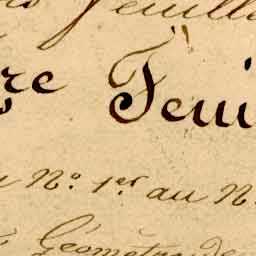 feuill
re Feui
N.º 1.er au N.
Géomètre de